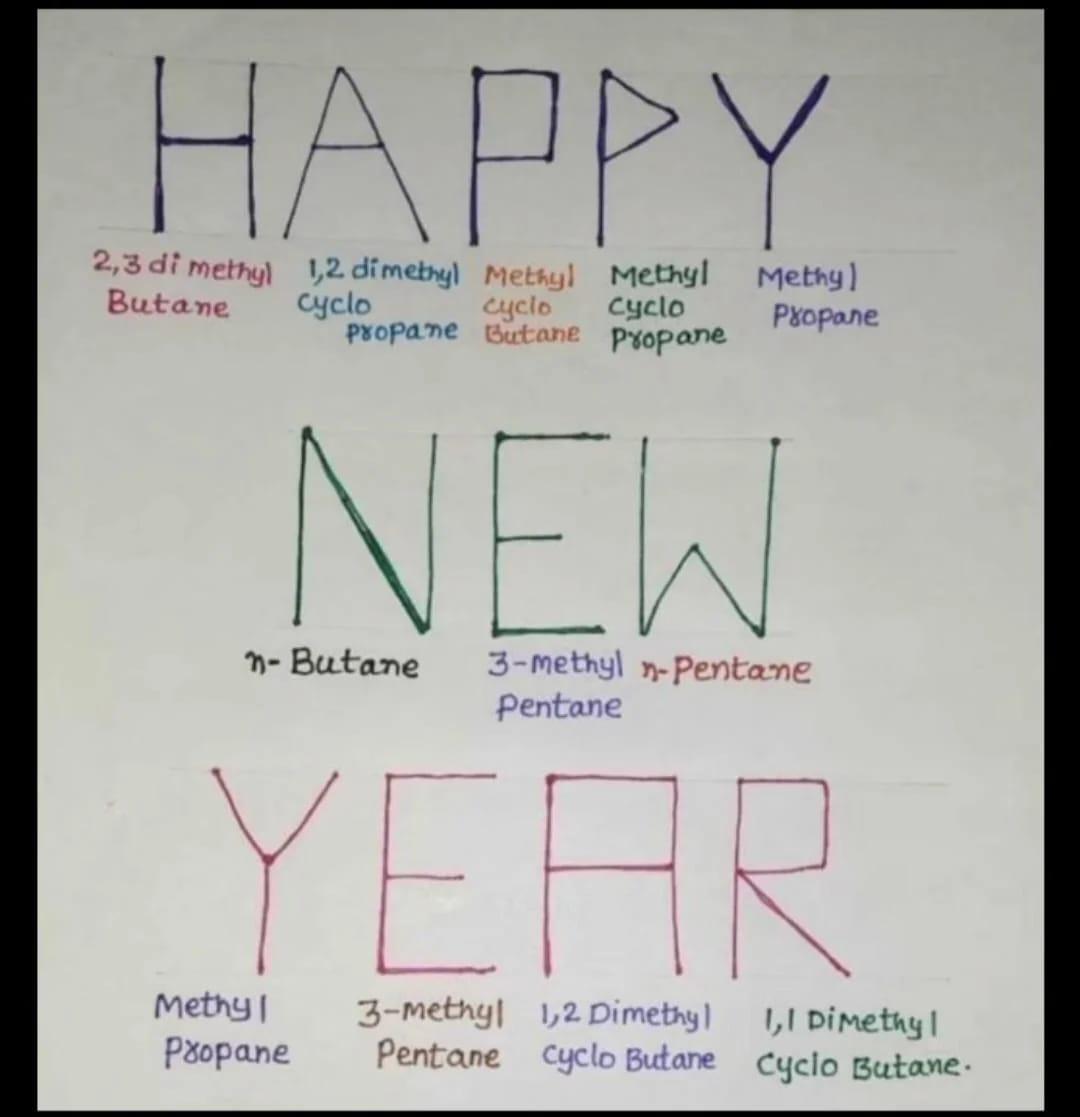 HAPPY
2,3 di methyl Butane
1,2 dimethyl cyclo propane
Methyl cyclo Butane
Methyl cyclo propane
Methyl Propane
NEW
n- Butane
3-methyl Pentane
n-Pentane
YEAR
Methyl Propane
3-methyl Pentane
1,2 Dimethyl cyclo Butane
1,1 Dimethyl cyclo Butane.